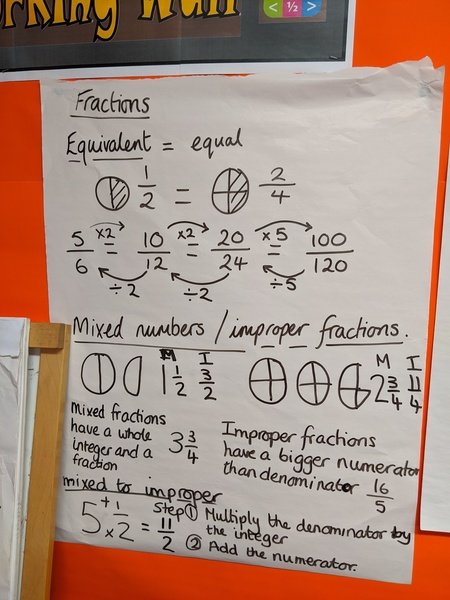 orking Wall
< ½ >
Fractions
Equivalent = equal
1/2 = 2/4
×2 ×2 ×5
5/6 = 10/12 = 20/24 = 100/120
÷2 ÷2 ÷5
Mixed numbers / improper fractions.
M I M I
1 1/2 3/2 2 3/4 11/4
Mixed fractions
have a whole
integer and a
fraction
3 3/4
Improper fractions
have a bigger numerator
than denominator 16/5
mixed to improper
5 + 1/×2 = 11/2
Step ① Multiply the denominator by
the integer
② Add the numerator.